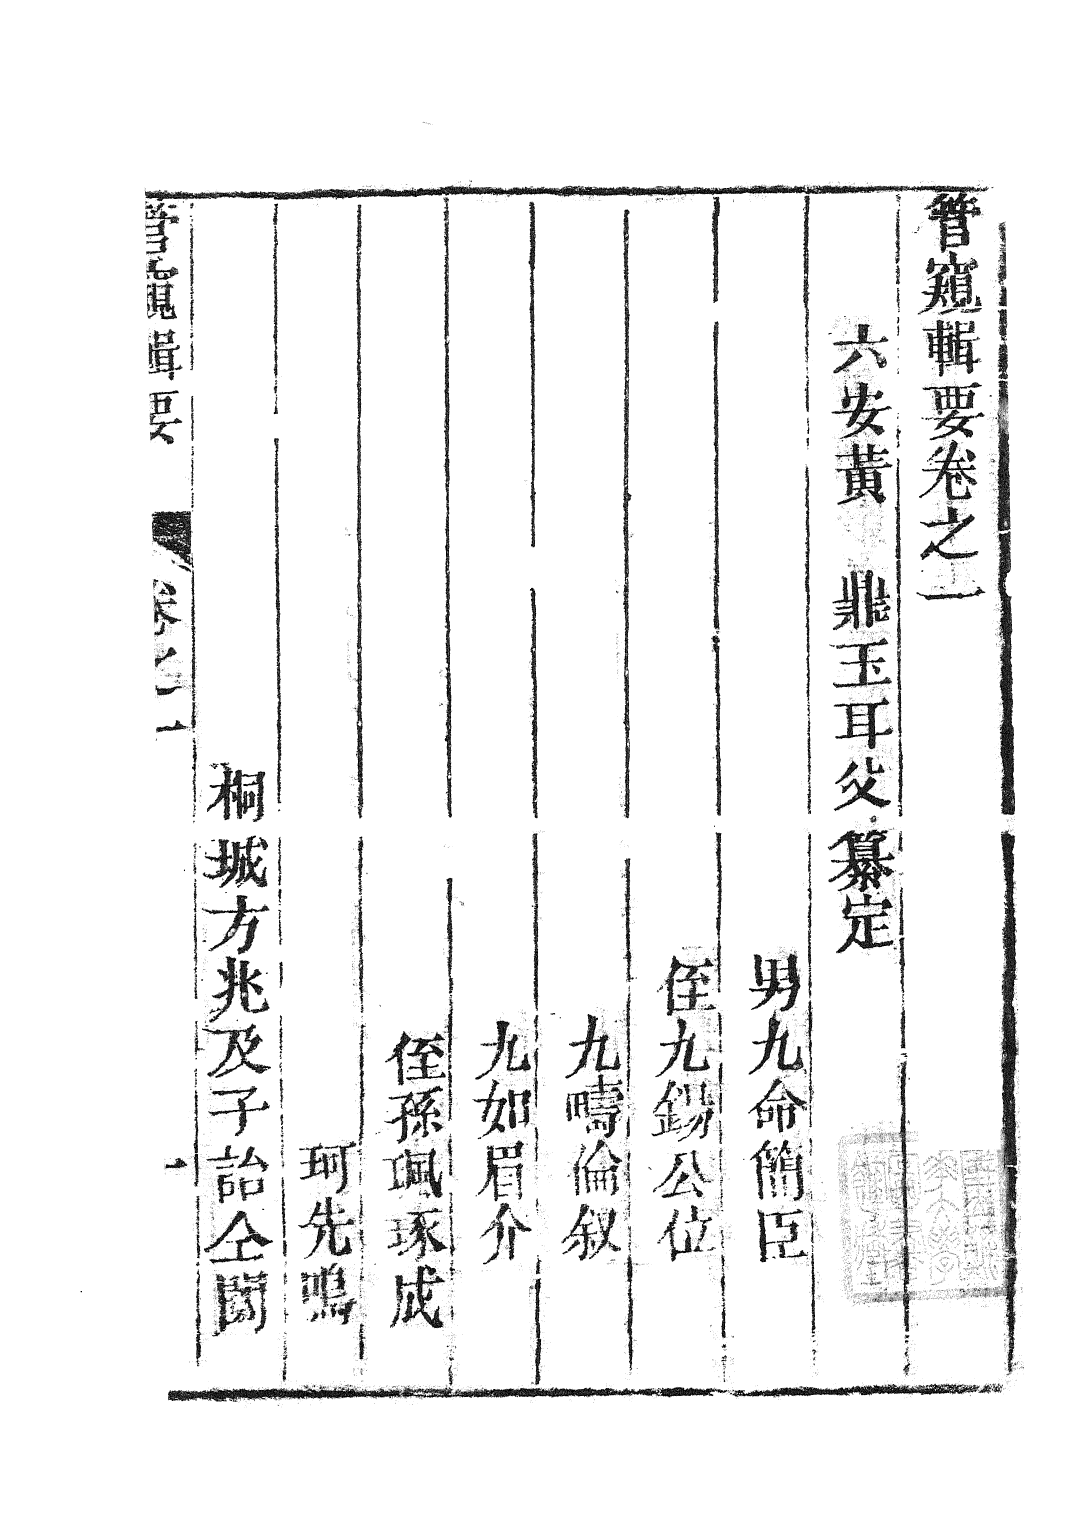 管窺輯要卷之一
六安黃 鼎玉耳父纂定
男九命簡臣
侄九錫公位
九疇倫叙
九如眉介
侄孫珮琢成
珂先鳴
桐城方兆及子詒仝閱
管窺輯要 卷之一 一